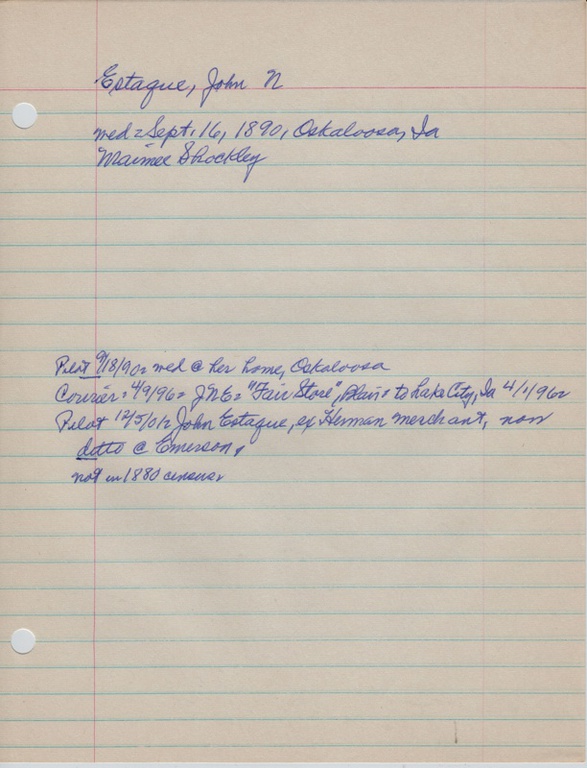 Estaque, John N
med = Sept. 16, 1890, Oskaloosa, Ia
Maimee Shockley
Pilot 9/18/90 = wed @ her home, Oskaloosa
Courier = 4/9/96 = JNE = "Fair Store", Blair = to Lake City, Ia 4/1/96 =
Pilot 12/5/01 = John Estaque, ex Herman merchant, now
ditto @ Emerson,
not in 1880 census